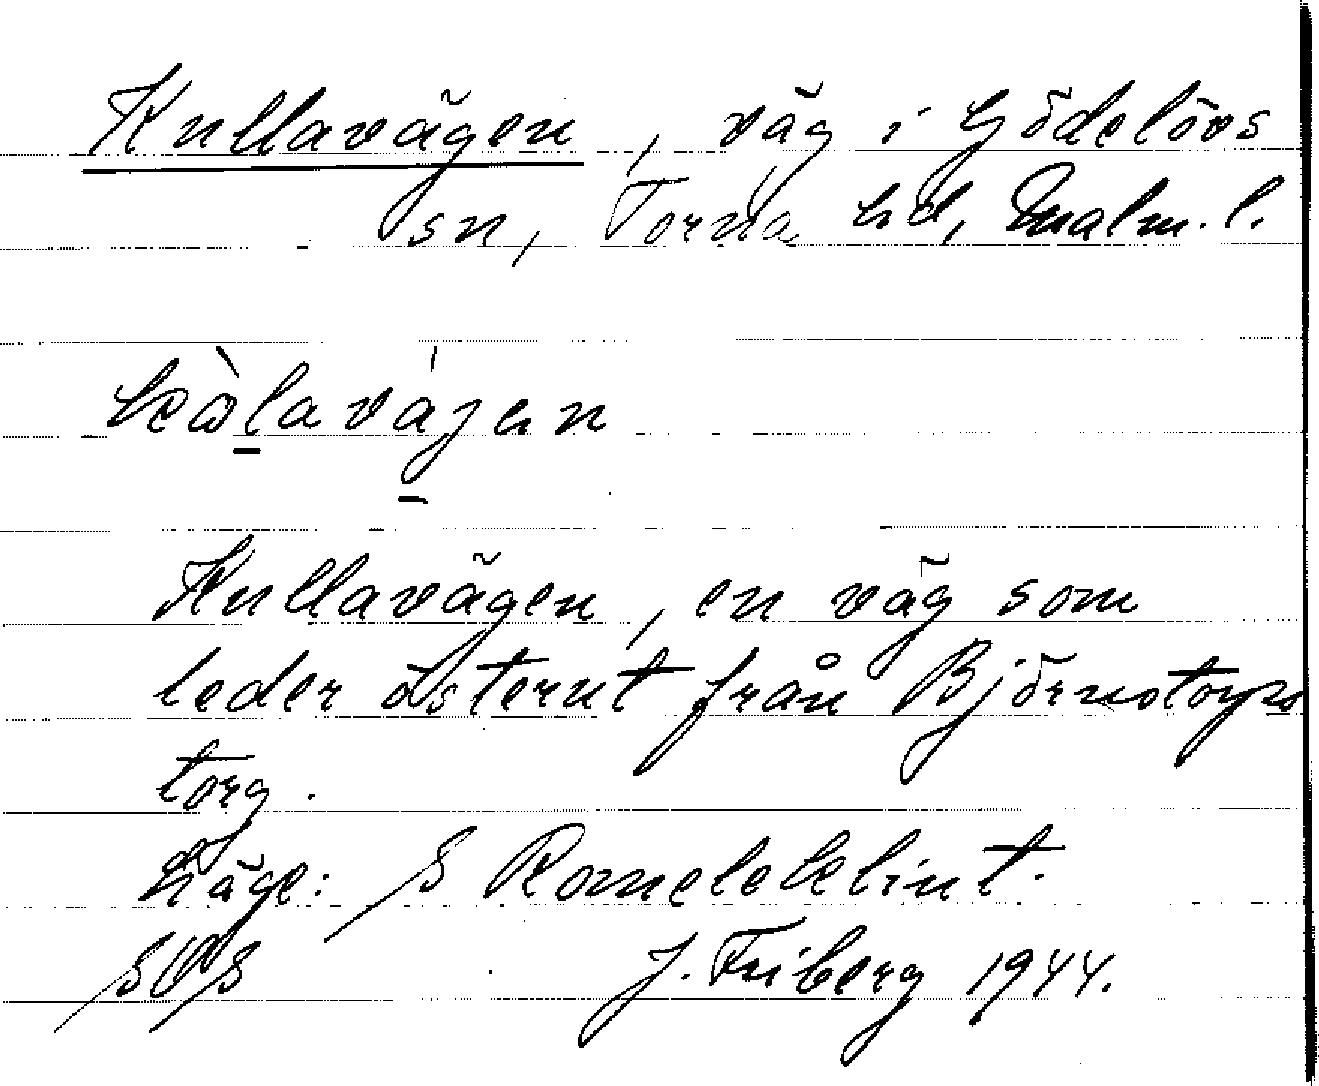 Kullavägen, väg i Gödelövs
sn, Torna hd, Malm. l.
Kullavägen, en väg som
leder österut från Björnstorps
torg.
Läge: S Romeleklint.
J. Friberg 1944.